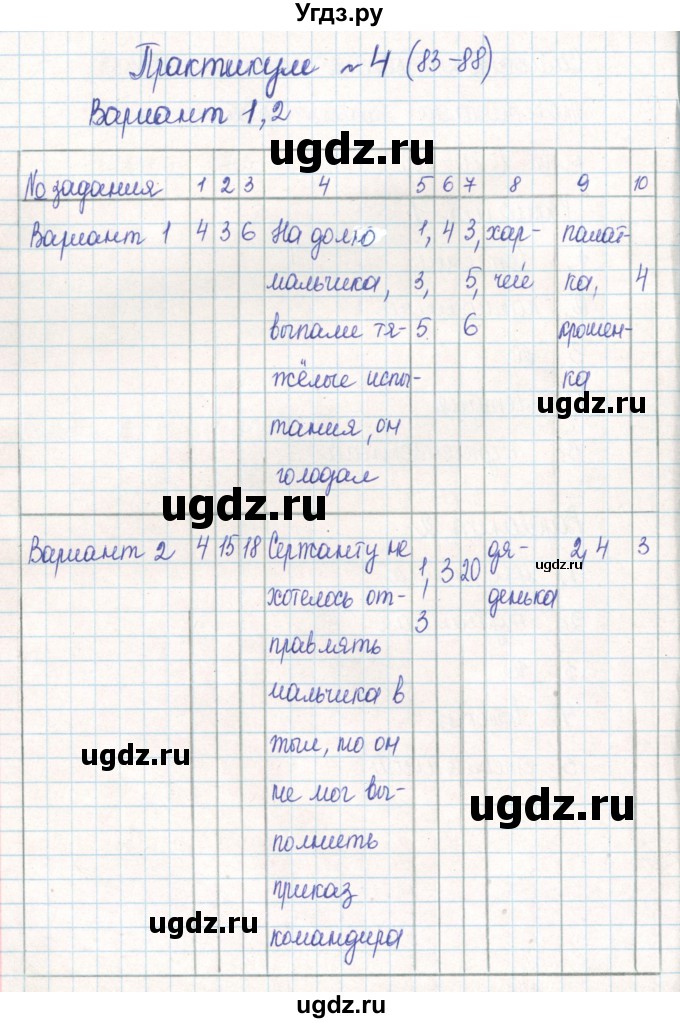 Угдз.ру
Практикум №4 (83-88)
Вариант 1,2
ugdz.ru
№ задания 1 2 3 4 5 6 7 8 9 10
Вариант 1 4 3 6 На долю 1, 4 3, хар- палат-
мальчика, 3, 5, чей ка, 4
выпали тя- 5 6 крошен-
жёлые испы- ка
ugdz.ru
тания, он
голодал
ugdz.ru
Вариант 2 4 15 18 Сержанту не 1, 3 20 дя- 2, 4 3
ugdz.ru
хотелось от- 3 денька
правлять
мальчика в
тыл, но он
ugdz.ru
не мог вы-
ugdz.ru
полнить
приказ
ugdz.ru
командира
ugdz.ru